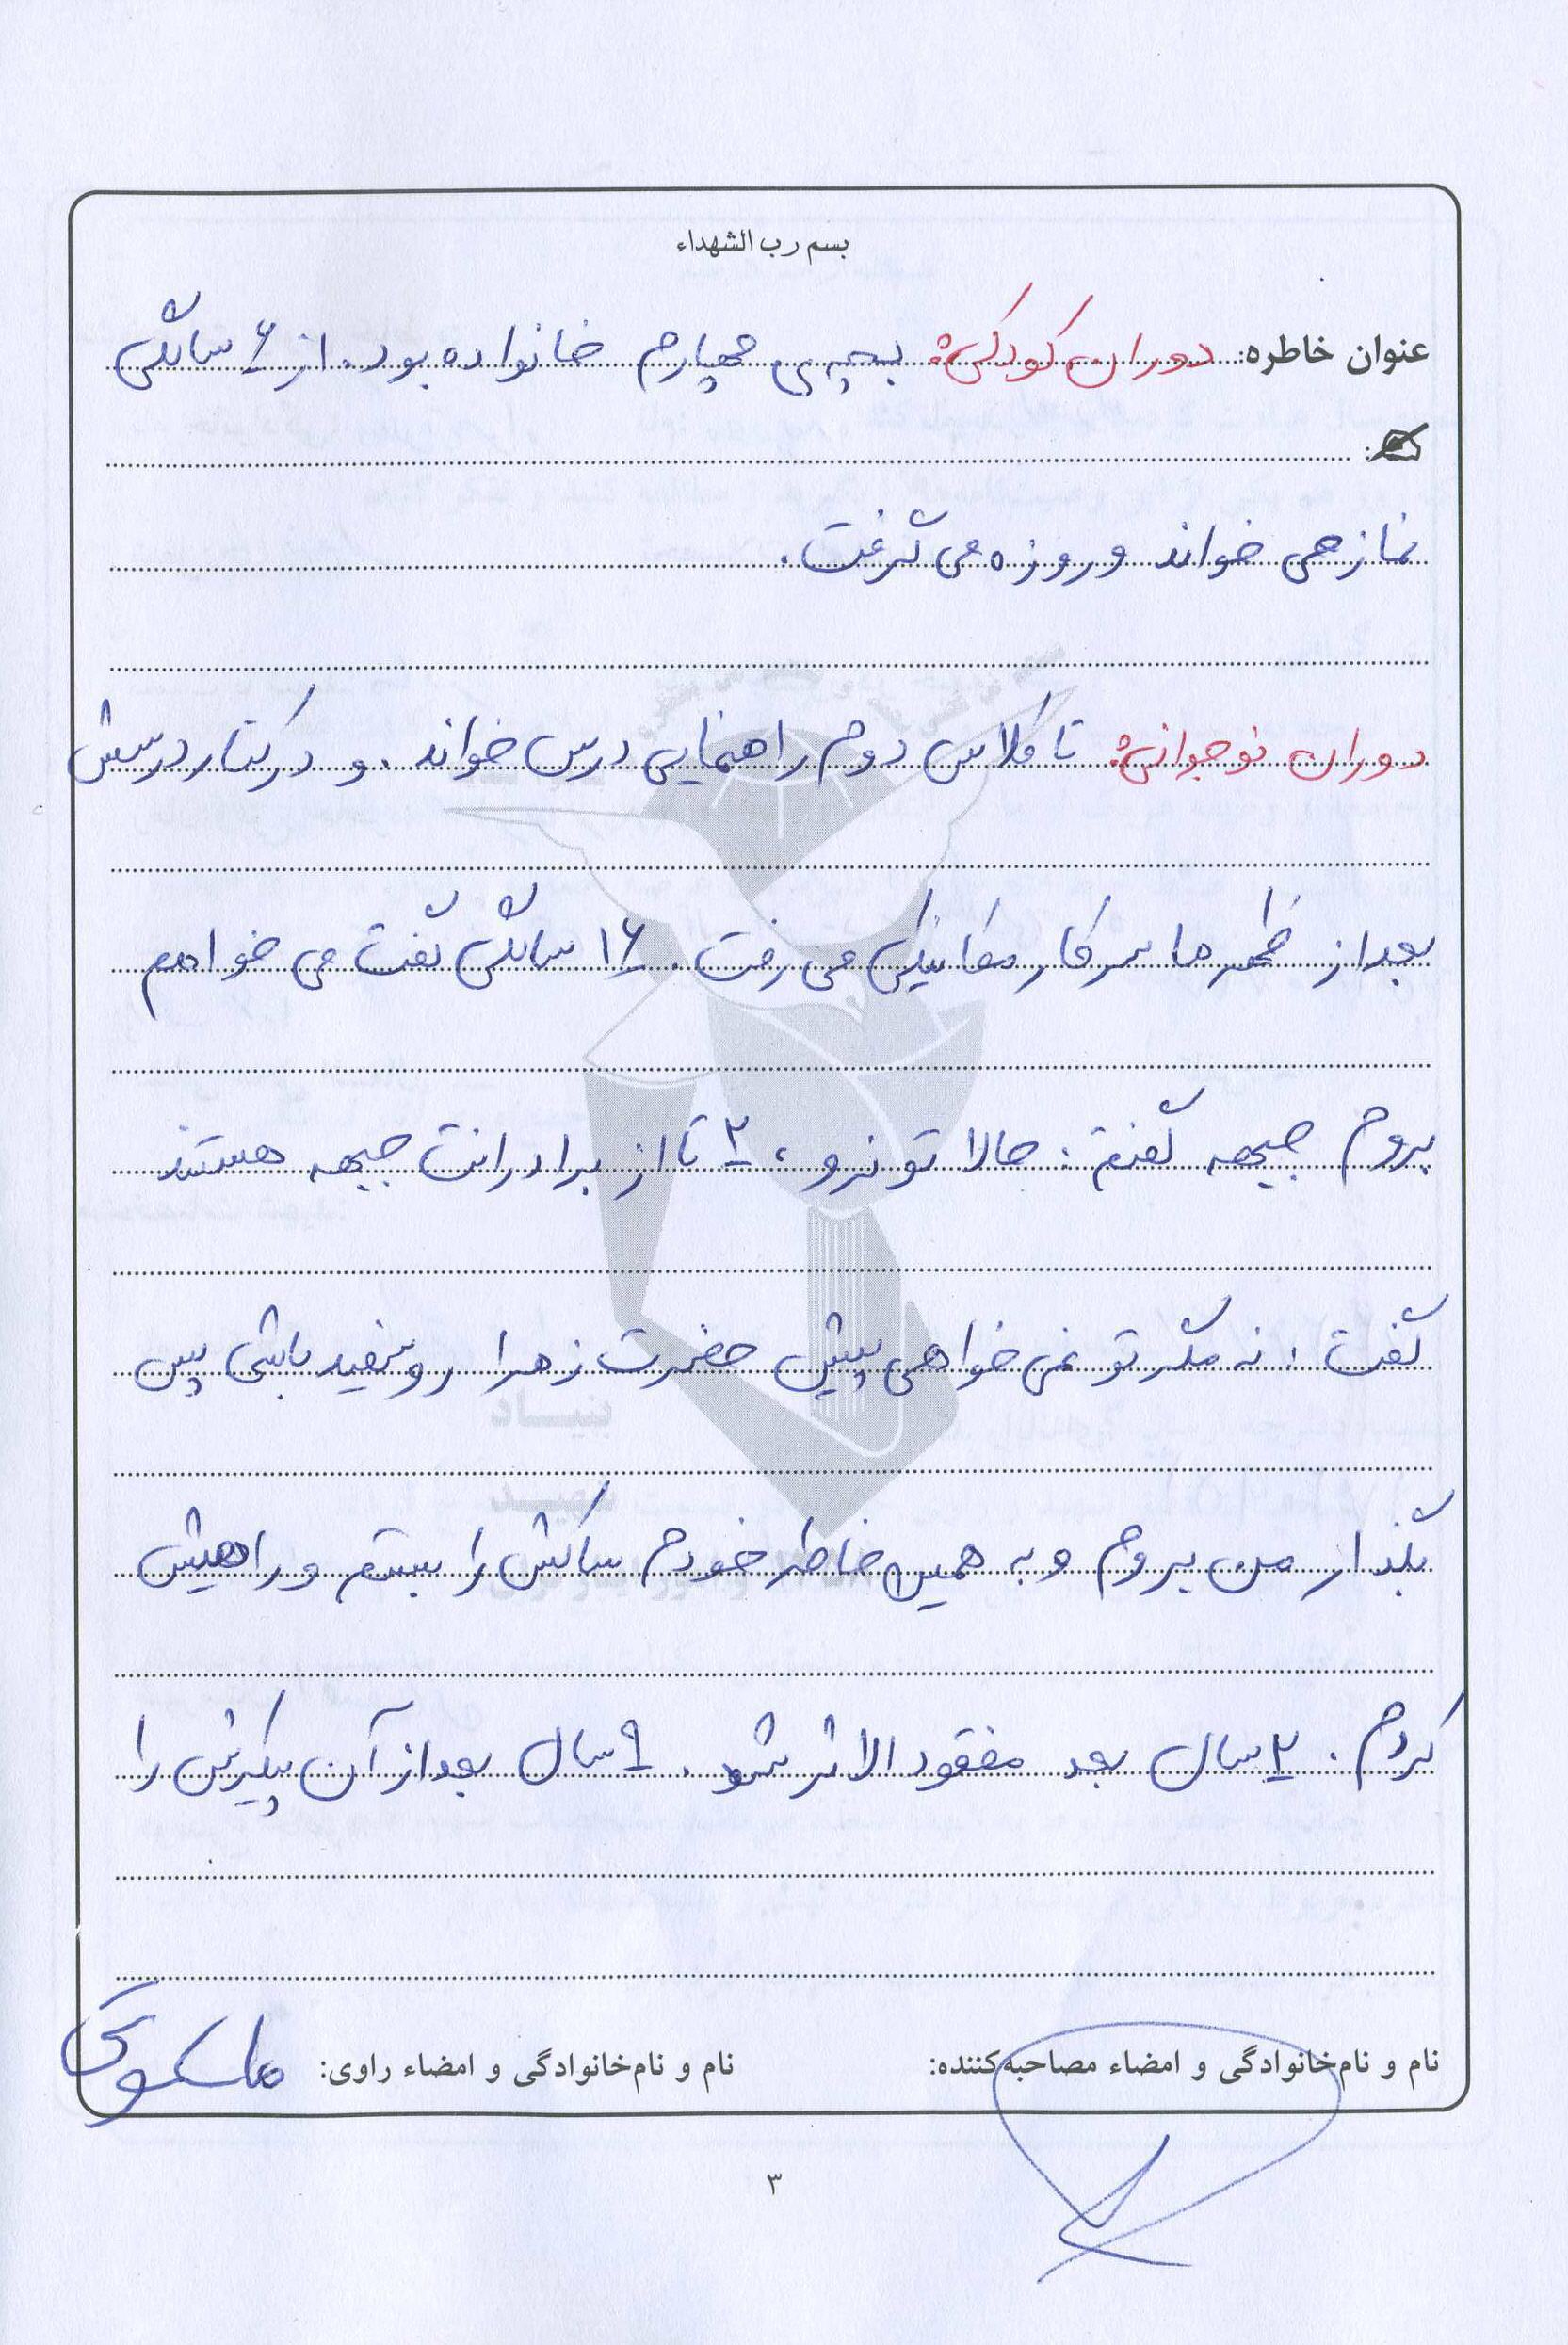 بسم رب الشهداء
عنوان خاطره: دوران کودکی: بچه ی چهارم خانواده بود. از ۶ سالگی
نماز می خواند و روزه می گرفت.
دوران نوجوانی: تا کلاس دوم راهنمایی درس خواند. و در کنار درسش
بعد از ظهرها سر کار مکانیکی می رفت. ۱۶ سالگی گفت می خواهم
بروم جبهه گفتم: حالا تو نرو، ۲ تا از برادرانت جبهه هستند
گفت: نه مگر تو نمی خواهی پیش حضرت زهرا روسفید باشی پس
بگذار من بروم و به همین خاطر خودم ساکش را بستم و راهیش
کردم. ۲ سال بعد مفقود الاثر شد. ۹ سال بعد از آن پیکرش را
نام و نام‌خانوادگی و امضاء مصاحبه‌کننده:
نام و نام‌خانوادگی و امضاء راوی:
۳
بنیاد
شهید